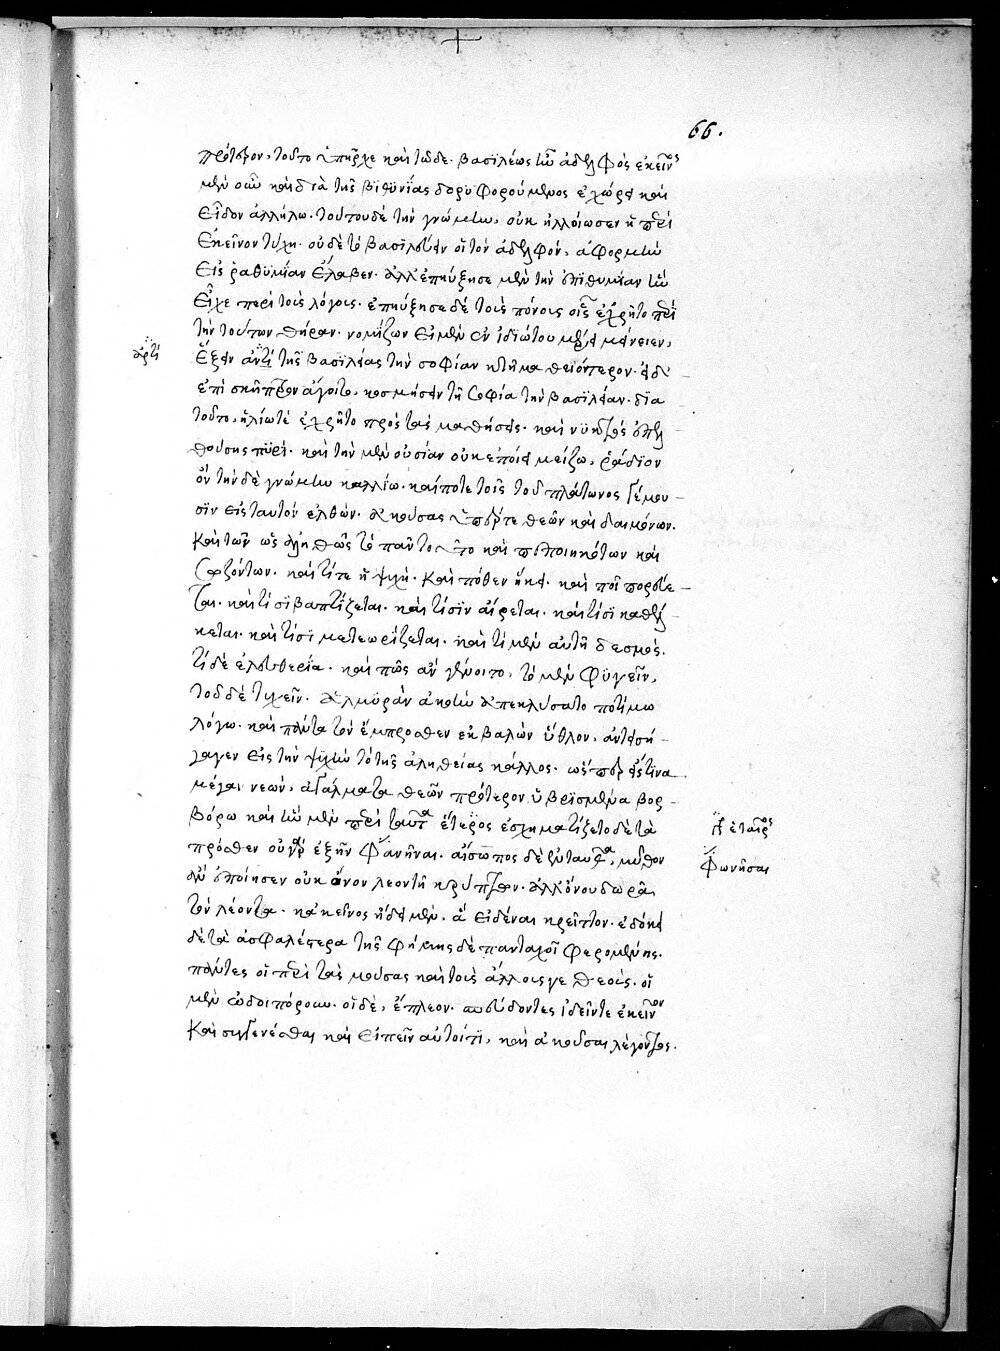 66.
πρότερον, τοῦτο ὑπῆρχε καὶ τῶδε. βασιλέως ἦν ἀδελφὸς ἐκεῖνος
μὲν οὖν καὶ διὰ τῆς βιθυνίας δορυφορούμενος ἐχώρει καὶ
εἶδον ἀλλήλω. τούτου δὲ τὴν γνώμην, οὐκ ἠλλοίωσεν ἡ περὶ
ἐκεῖνον τύχη. οὐδὲ τὸ βασιλεύειν οἱ τὸν ἀδελφόν, ἀφορμὴν
εἰς ῥαθυμίαν ἔλαβεν. ἀλλ' ἐπηύξησε μὲν τὴν ἐπιθυμίαν ἣν
εἶχε περὶ τοὺς λόγους. ἐπηύξησε δὲ τοὺς πόνους οἷς ἐχρῆτο περὶ
τὴν τούτων θήραν. νομίζων εἰ μὲν ἐν ἰδιώτου μέρει μένειεν,
ἕξειν ἀντὶ τῆς βασιλείας τὴν σοφίαν κτῆμα θειότερον. εἰ δ'
ἐπὶ σκῆπτρον ἄγοιτο, κοσμήσειν τῇ σοφία τὴν βασιλείαν. διὰ
τοῦτο, ἡλίω τὲ ἐχρῆτο πρὸς τὰς μαθήσεις. καὶ νυκτὸς ἐπελ
θούσης πυρί. καὶ τὴν μὲν οὐσίαν οὐκ ἐποίει μείζω, ῥάδιον
ὂν τὴν δὲ γνώμην καλλίω. καί ποτε τοῖς τοῦ πλάτωνος γέμου -
σιν εἰς ταυτὸν ἐλθὼν. ἀκούσας ὑπέρ τε θεῶν καὶ δαιμόνων.
καὶ τῶν ὡς ἀληθῶς τὸ πᾶν τοῦτο καὶ πεποιηκότων καὶ
σωζόντων. καὶ τί τε ἡ ψυχὴ. καὶ πόθεν ἥκει. καὶ ποῖ πορεύε -
ται. καὶ τίσι βαπτίζεται. καὶ τίσιν αἴρεται. καὶ τίσι καθέλ -
κεται. καὶ τίσι μετεωρίζεται. καὶ τί μὲν αὐτῇ δεσμός.
τί δὲ ἐλευθερία. καὶ πῶς ἂν γένοιτο, τὸ μὲν φυγεῖν,
τοῦ δὲ τυχεῖν. ἁλμυρὰν ἀκοὴν ἀπεκλύσατο ποτίμω
λόγω. καὶ πάντα τὸν ἔμπροσθεν ἐκβαλὼν ὕθλον, ἀντεισή -
γαγεν εἰς τὴν ψυχὴν τὸ τῆς ἀληθείας κάλλος. ὡς περ εἴς τινα
μέγαν νεών, ἀγάλματα θεῶν πρότερον ὑβρισμένα βορ -
βόρω καὶ ἦν μὲν περὶ ταῦτα ἕτερος ἐσχηματίζετο δὲ τὰ
πρόσθεν οὐ γὰρ ἐξῆν φανῆναι. αἴσωπος δὲ ἐνταῦθα, μῦθον
ἂν ἐποίησεν οὐκ ὄνον λεοντῆ κρύπτων. ἀλλ' ὄνου δορᾶ
τὸν λέοντα. κἀκεῖνος ἤδει μὲν, ἃ εἰδέναι κρεῖττον. ἐδόκει
δὲ τὰ ἀσφαλέστερα τῆς φήμης δὲ πανταχοῖ φερομένης.
πάντες οἱ περὶ τὰς μούσας καὶ τοὺς ἄλλους γε θεούς. οἱ
μὲν ὡδοιπόρουν. οἱ δὲ, ἔπλεον. σπεύδοντες ἰδεῖν τε ἐκεῖνον
καὶ συγγενέσθαι καὶ εἰπεῖν αὐτοί τι, καὶ ἀκοῦσαι λέγοντος.
ἀρτὶ
ἕταιρος
φωνῆσαι